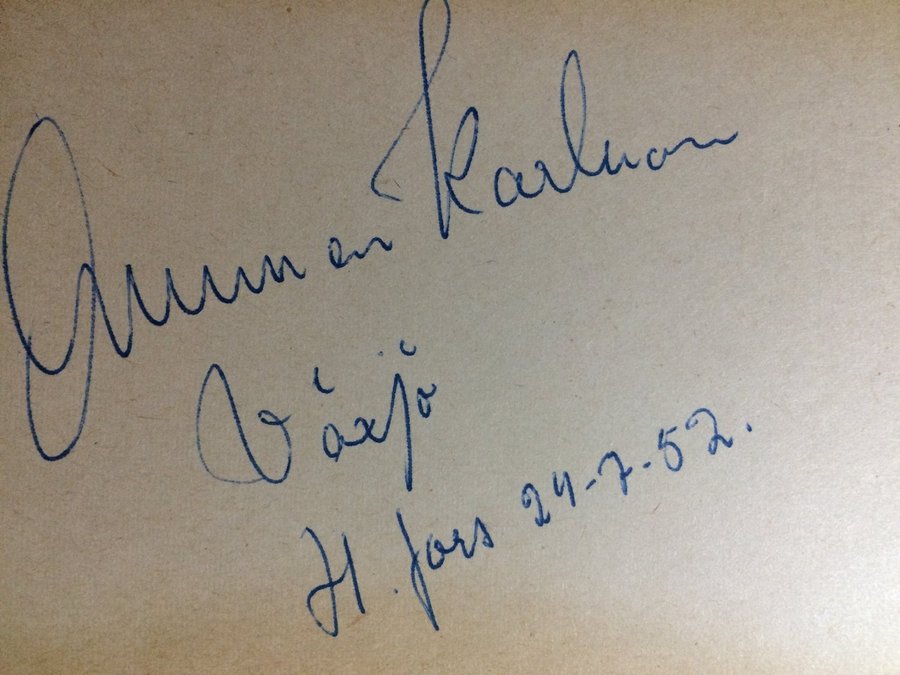 Gunnar Karlsson
Växjö
H.fors 24-7-52.